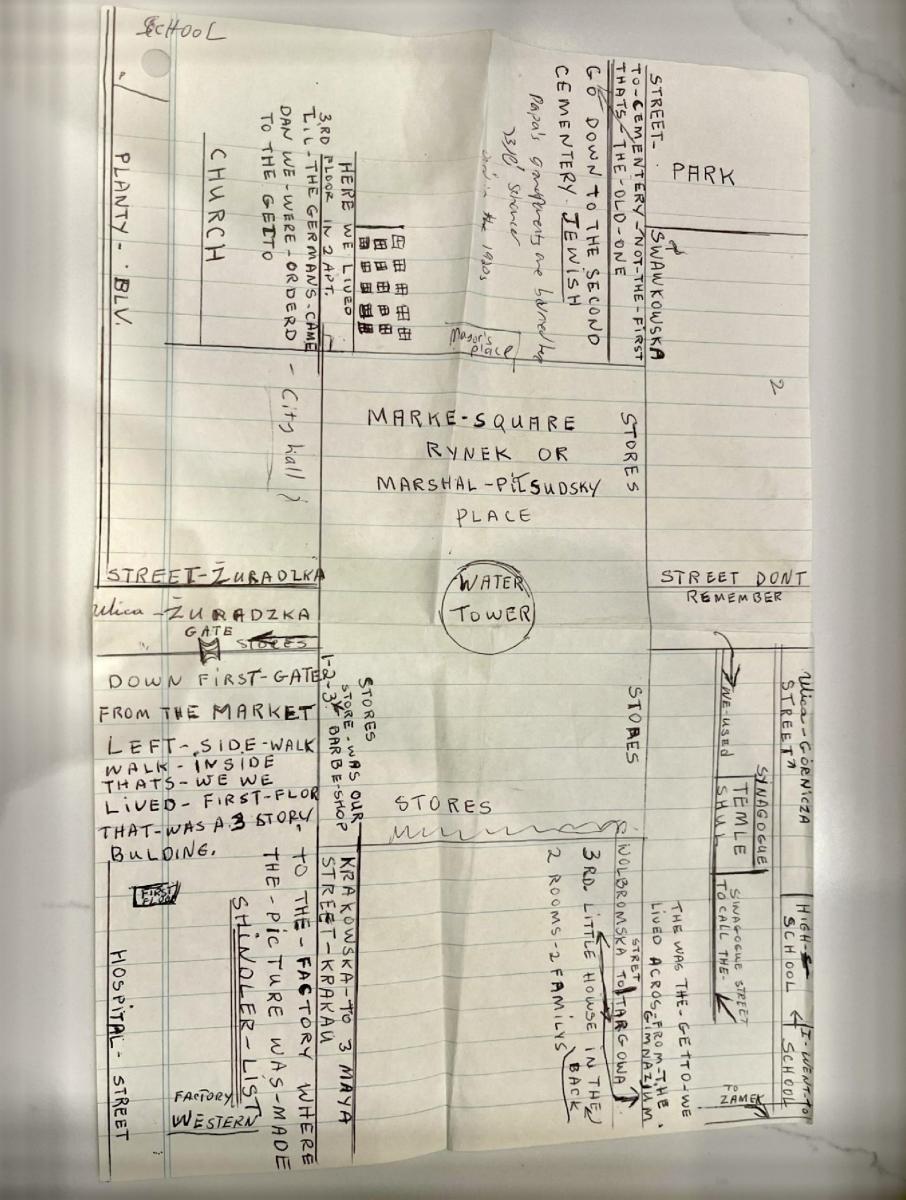 SCHOOL
PLANTY - BLV.
CHURCH
3.RD FLOOR IN 2 APT.
HERE WE LIVED
TIL-THE GERMANS-CAME
DAN WE-WERE-ORDERD
TO THE GETTO
- City hall
STREET-
TO-CEMENTERY-NOT-THE-FIRST
THATS-THE-OLD-ONE
GO DOWN TO THE SECOND
CEMENTERY. JEWISH
Papa's grandparents are
in the 1920s
PARK
SWAWKOWSKA
2
Mayor's
place
MARKE-SQUARE
RYNEK OR
MARSHAL-PIŁSUDSKY
PLACE
STORES
WATER
TOWER
STREET DONT
REMEMBER
STREET-ŻURADZKA
Ulica-ŻURADZKA
GATE
STORES
DOWN FIRST-GATE
FROM THE MARKET
LEFT-SIDE-WALK
WALK-INSIDE
THATS-WE WE
LIVED-FIRST-FLOR
THAT-WAS A 3 STORY.
BULDING.
FIRST
FLOOR
HOSPITAL-STREET
STORES
1-2-3
STORE-WAS OUR
BARBE-SHOP
STORES
STORES
KRAKOWSKA-TO 3 MAYA
STREET-KRAKAU
TO THE-FACTORY WHERE
THE-PICTURE WAS-MADE
SHINDLER-LIST
FACTORY
WESTERN
WOLBROMSKA TO TARGOWA
STRET
3RD. LITTLE HOWSE IN THE
BACK
2 ROOMS-2 FAMILYS
THE WAS THE-GETTO-WE
LIVED ACROS-FROM-THE
GIMNAZIUM.
WE-USED
TO CALL THE-
SINAGOGUE STREET
SYNAGOGUE
TEMLE
SHUL
Ulica-GÓRNICZA
STREET
HIGH-
SCHOOL
I-WENT-TO
SCHOOL
TO
ZAMEK